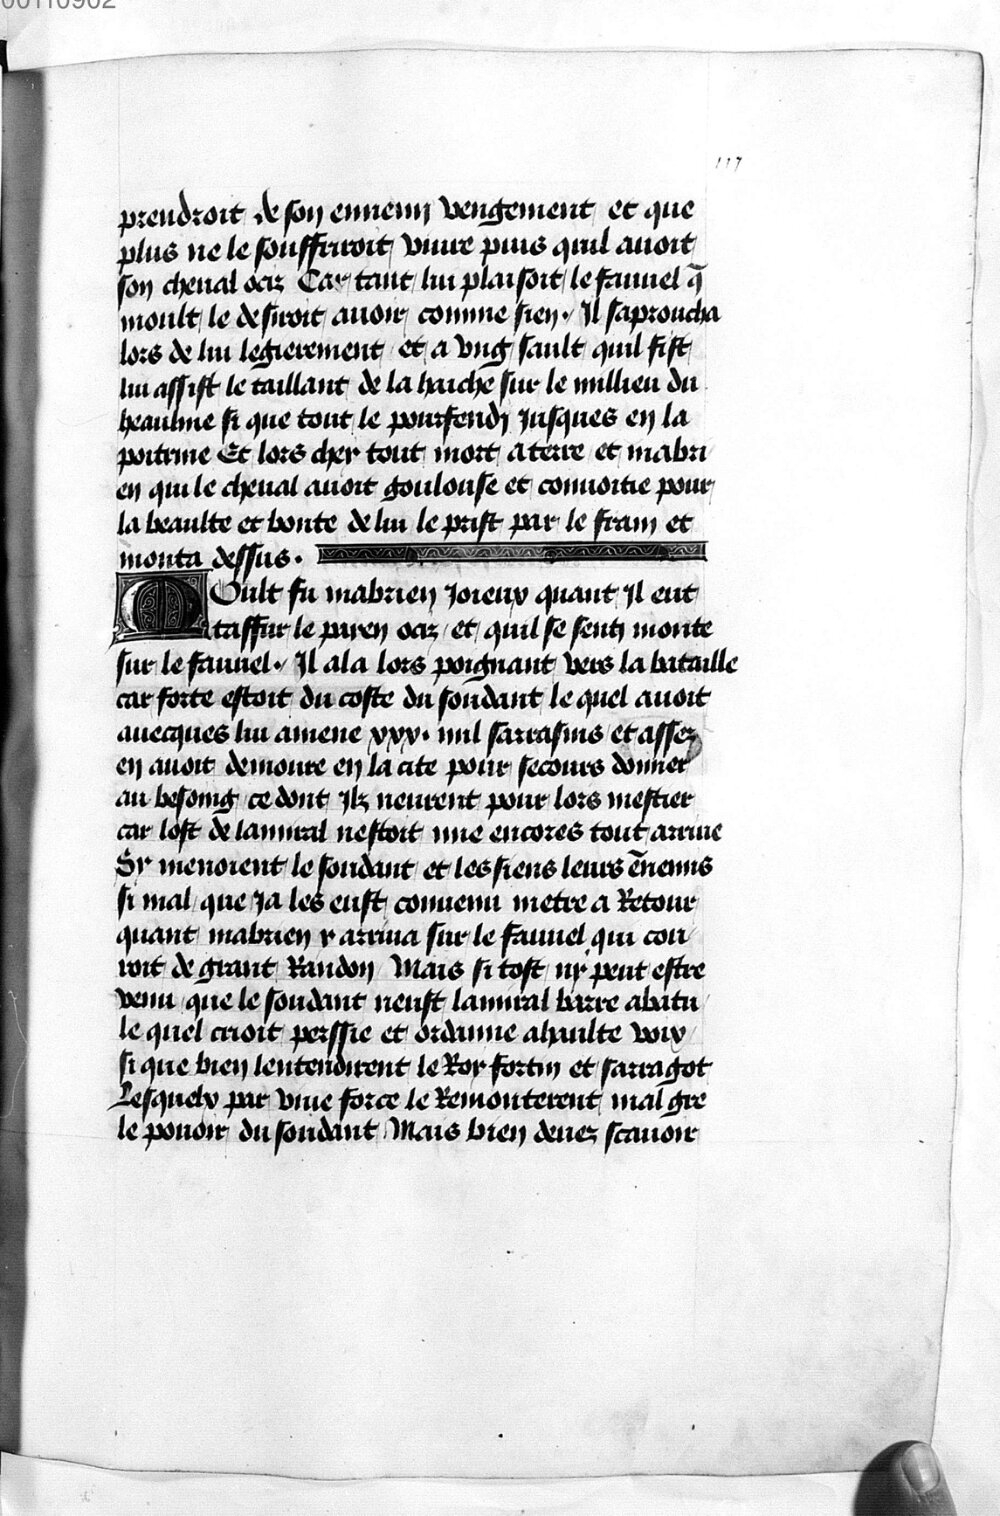 00110902
117
prendroit de son ennemy vengement et que
plus ne le souffriroit viure puis quil auoit
son cheual ocis Car tant lui plaisoit le fauuel q̄
moult le desiroit auoir comme sien. Il saproucha
lors de lui legierement et a vng sault quil fist
lui assist le taillant de la hache sur le millieu du
heaulme si que tout le pourfendy Jusques en la
poitrine Et lors chey tout mort a terre et mabri
en qui le cheual auoit goulouse et conuoitie pour
la beaulte et bonte de lui le prist par le frain et
monta dessus.
Moult fu mabrien Joieux quant Il eut
taffur le payen ocis et quil se senty monte
sur le fauuel. Il ala lors poignant vers la bataille
car forte estoit du coste du soudant le quel auoit
auecques lui amene xxx. mil sarrasins et assez
en auoit demoure en la cite pour secours donner
au besoing ce dont Ilz neurent pour lors mestier
car lost de lamiral nestoit mie encores tout arriue
Sy menoient le soudant et les siens leurs en̄emis
si mal que Ja les eust conuenu metre a Retour
quant mabrien y arriua sur le fauuel qui cou
roit de grant Randon Mais si tost ny peut estre
venu que le soudant neust lamiral barre abatu
le quel crioit perssie et ordanne a haulte voix
si que bien lentendirent le Roy fortin et sarragot
Lesquelx par viue force le Remonterent mal gre
le pouoir du soudant Mais bien deuez scauoir